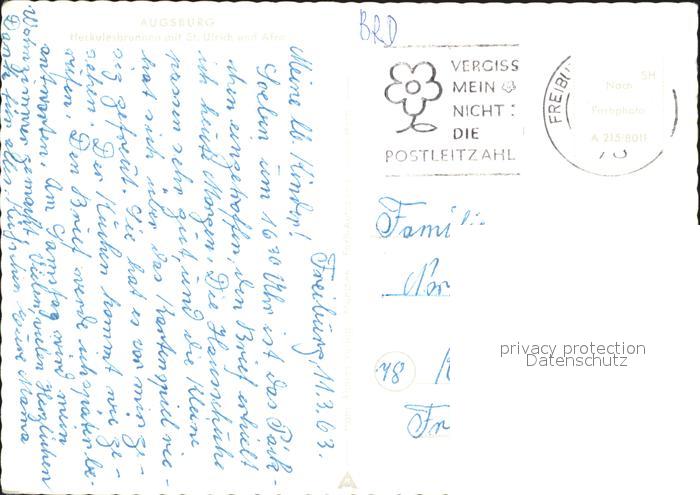 AUGSBURG
Herkulesbrunnen mit St. Ulrich und Afra
BRD
VERGISS
MEIN
NICHT:
DIE
POSTLEITZAHL
FREIBU
SH
Nach
Farbphoto
A 215/8011
Freiburg, 11.3.63.
Meine lb. Kinder!
Soeben um 16³⁰ Uhr ist das Päck-
chen eingetroffen, den Brief erhielt
ich heute Morgen. Die Hausschuhe
passen sehr gut, und die Kleine
hat sich über das Kartenspiel rie-
sig gefreut. Sie hat es vor mir ge-
sehen. Der Kuchen kommt wie ge-
rufen. Den Brief werde ich später be-
antworten. Am Samstag wird mein
Wohnzimmer gemacht. Vielen, vielen herzlichen
Dank für alles. Eure Mama
Famili
Nor
78
Fr
privacy protection
Datenschutz